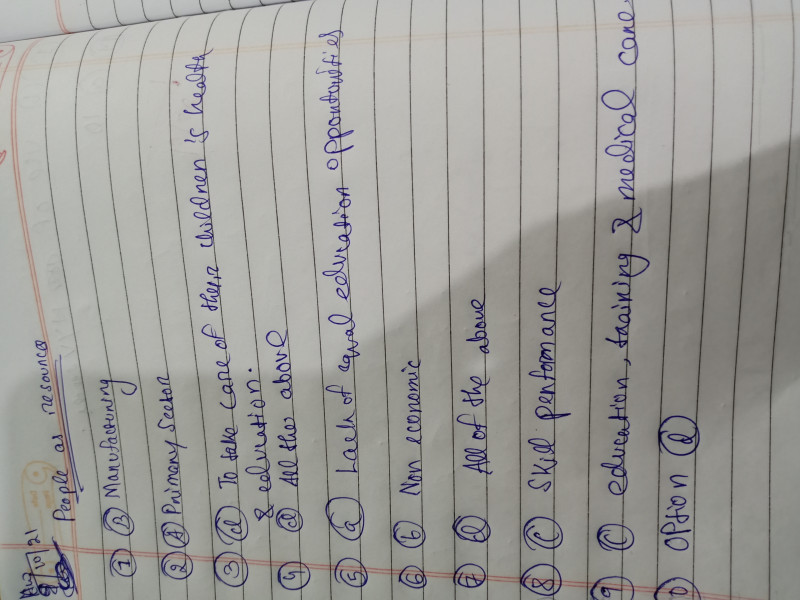 People as resources
① Ⓑ Manufacturing
② Ⓐ Primary Sector
③ ⓓ To take care of their children is health
& education.
④ ⓓ All the above
⑤ ⓐ Lack of equal education opportunities
⑥ ⓑ Non economic
⑦ ⓓ All of the above
⑧ Ⓒ Skill performance
⑨ Ⓒ education, training & medical care.
Option ⓓ